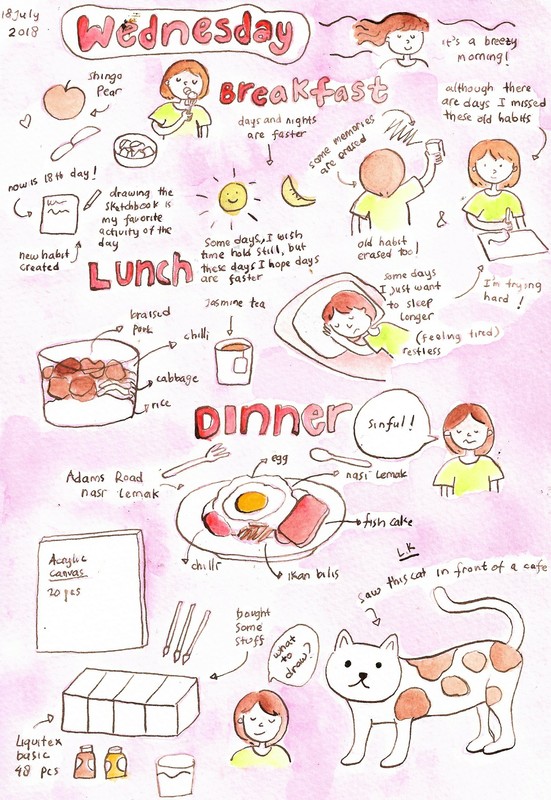 18 July
2018
Wednesday
it's a breezy
morning!
Shingo
Pear
BReakfast
although there
are days I missed
these old habits
days and nights
are faster
some memories
are erased
now is 18th day!
drawing the
sketchbook is
my favorite
activity of the
day
new habit
created
Some days, I wish
time hold still, but
these days I hope days
are faster
old habit
erased too!
&
I'm trying
hard!
LUNCH
Jasmine tea
some days
I just want
to sleep
longer
(feeling tired)
restless
braised
pork
chilli
cabbage
rice
DINNER
Sinful!
egg
nasi lemak
Adams Road
nasi lemak
fish cake
chilli
ikan bilis
L.K
saw this cat in front of a cafe
Acrylic
canvas
20 pcs
bought
some
stuff
what
to
draw?
Liquitex
basic
48 pcs